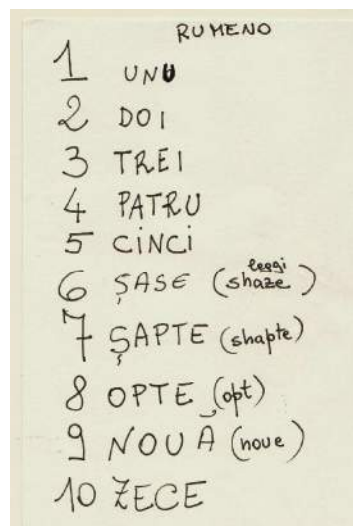 RUMENO
1 UNU
2 DOI
3 TREI
4 PATRU
5 CINCI
6 ŞASE (leggi shaze)
7 ŞAPTE (shapte)
8 OPTE (opt)
9 NOUA (noue)
10 ZECE